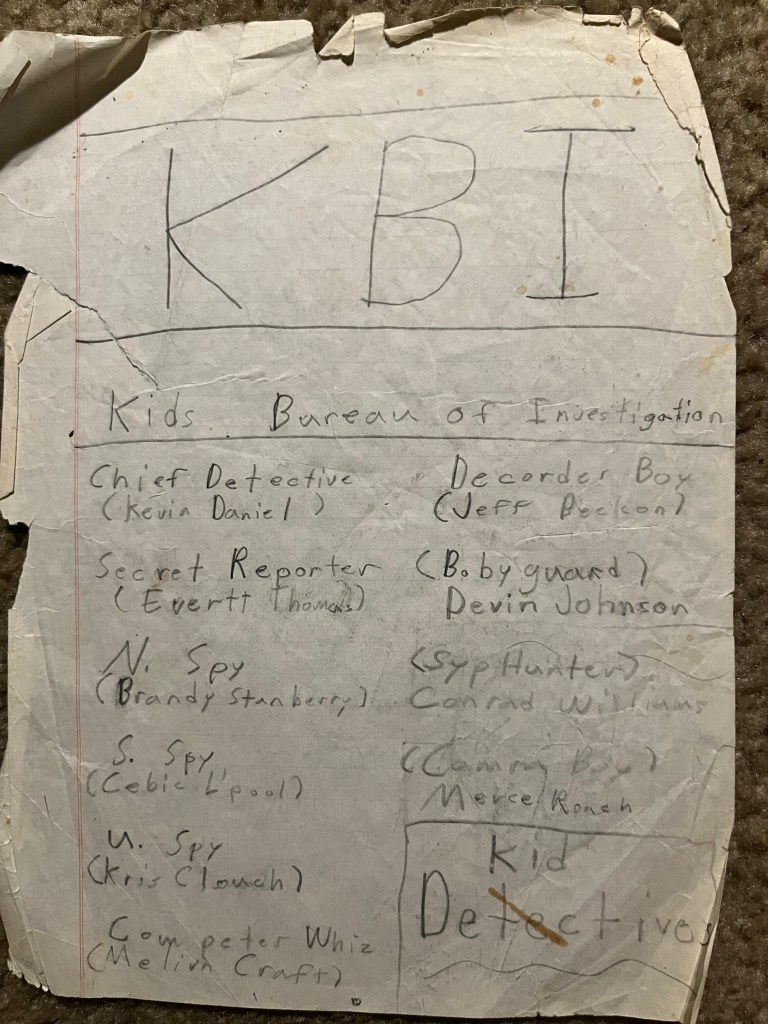 KBI
Kids Bureau of Investigation
Chief Detective
(Kevin Daniel)
Secret Reporter
(Evertt Thomas)
N. Spy
(Brandy Stanberry)
S. Spy
(Cebic L'pool)
U. Spy
(Kris Clouch)
Competer Whiz
(Melivn Craft)
Decorder Boy
(Jeff Beckon)
(Boby guard)
Devin Johnson
(Syp Hunter)
Conrad Williams
Merce Roach
Kid
Detectives